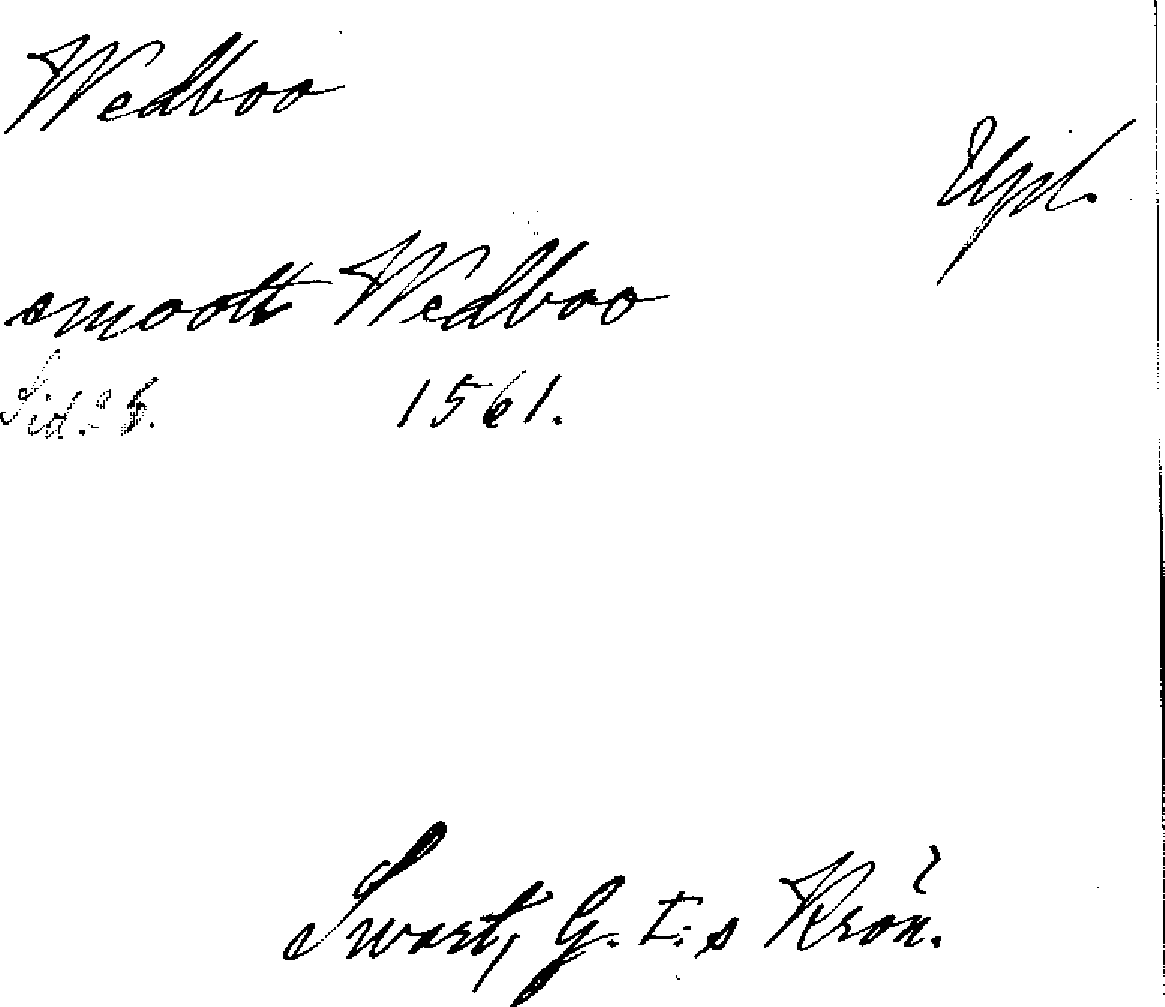 Wedboo
Upl.
emoott Wedboo
Sid. 25. 1561.
Swart, G. I:s Krön.